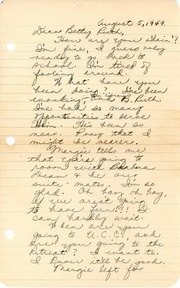 August 5, 1949.
Dear Betty Ruth,
How are you
I'm fine, I guess. I'm
ready to go back to
school. I'm tired of
fooling around.
What have you
been doing? I've been
One had so many
opportunities to serve
Him. It's been so
near. Pray that I
might be nearer.
Margie tells me
that you're going to
room with
and be our
suite-mates. I'm so
glad. Oh boy, oh boy,
if we aren't going to
have fun!! I
can hardly wait.
When are you
going to U.C.C. and
are you going to the
Retreat? I want to.
I know it'll be good.
Margie left for